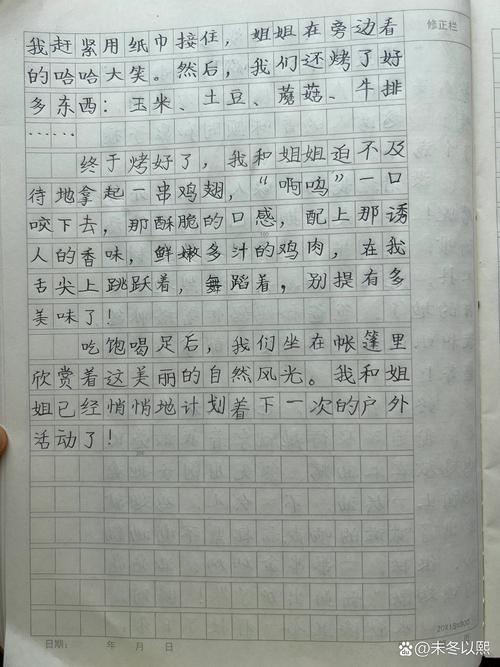 修正栏
我赶紧用纸巾接住，姐姐在旁边看
的哈哈大笑。然后，我们还烤了好
多东西：玉米、土豆、蘑菇、牛排
……
终于烤好了，我和姐姐迫不及
待地拿起一串鸡翅，“啊呜”一口
咬下去，那酥脆的口感，配上那诱
人的香味，鲜嫩多汁的鸡肉，在我
舌尖上跳跃着，舞蹈着，别提有多
美味了！
吃饱喝足后，我们坐在帐篷里
欣赏着这美丽的自然风光。我和姐
姐已经悄悄地计划着下一次的户外
活动了！
20×15=300
日期： 年 月 日
百家号@未冬以熙